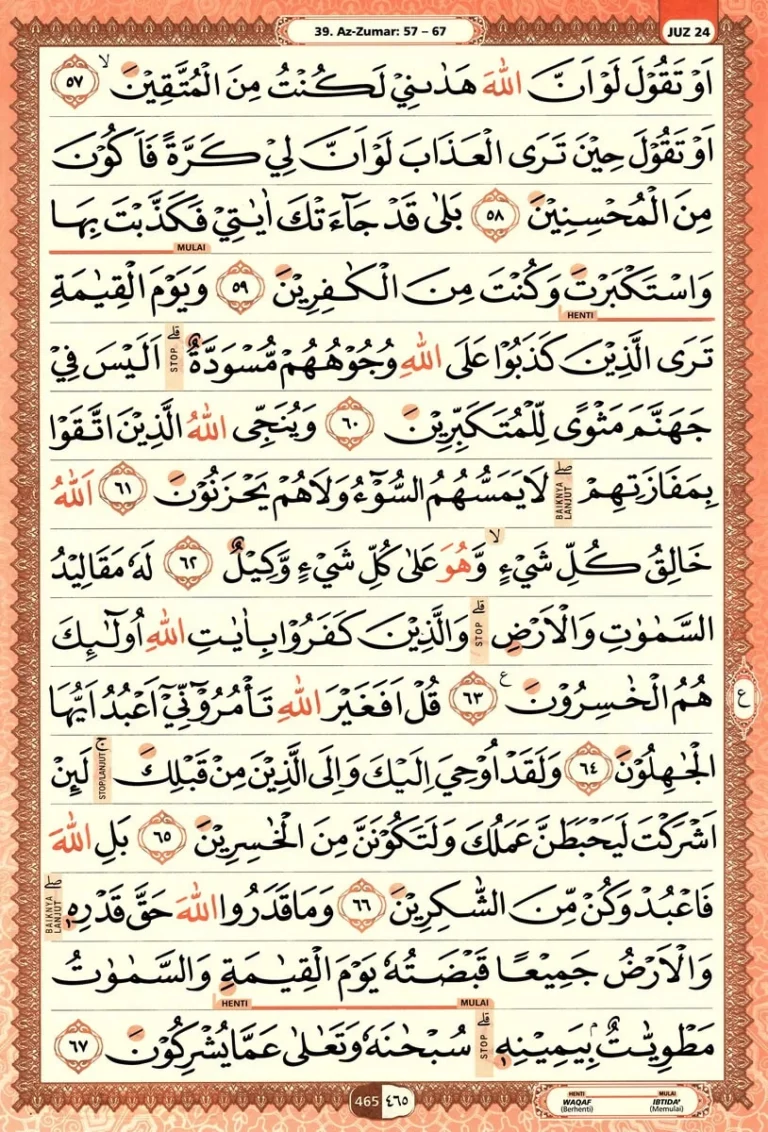 39. Az-Zumar: 57 – 67
JUZ 24
اَوْ تَقُوْلَ لَوْ اَنَّ اللّٰهَ هَدٰىنِيْ لَكُنْتُ مِنَ الْمُتَّقِيْنَ ۙ ٥٧
اَوْ تَقُوْلَ حِيْنَ تَرَى الْعَذَابَ لَوْ اَنَّ لِيْ كَرَّةً فَاَكُوْنَ
مِنَ الْمُحْسِنِيْنَ ٥٨ بَلٰى قَدْ جَاۤءَتْكَ اٰيٰتِيْ فَكَذَّبْتَ بِهَا
MULAI
وَاسْتَكْبَرْتَ وَكُنْتَ مِنَ الْكٰفِرِيْنَ ٥٩ وَيَوْمَ الْقِيٰمَةِ
HENTI
تَرَى الَّذِيْنَ كَذَبُوْا عَلَى اللّٰهِ وُجُوْهُهُمْ مُّسْوَدَّةٌ ۗ STOP اَلَيْسَ فِيْ
جَهَنَّمَ مَثْوًى لِّلْمُتَكَبِّرِيْنَ ٦٠ وَيُنَجِّى اللّٰهُ الَّذِيْنَ اتَّقَوْا
بِمَفَازَتِهِمْ ۖ BAIKNYA LANJUT لَا يَمَسُّهُمُ السُّوْۤءُ وَلَا هُمْ يَحْزَنُوْنَ ٦١ اَللّٰهُ
خَالِقُ كُلِّ شَيْءٍ ۙ وَّهُوَ عَلٰى كُلِّ شَيْءٍ وَّكِيْلٌ ٦٢ لَهٗ مَقَالِيْدُ
السَّمٰوٰتِ وَالْاَرْضِ ۗ STOP وَالَّذِيْنَ كَفَرُوْا بِاٰيٰتِ اللّٰهِ اُولٰۤىِٕكَ
هُمُ الْخٰسِرُوْنَ ࣖ ٦٣ قُلْ اَفَغَيْرَ اللّٰهِ تَأْمُرُوْۤنِّيْٓ اَعْبُدُ اَيُّهَا
ع
الْجٰهِلُوْنَ ٦٤ وَلَقَدْ اُوْحِيَ اِلَيْكَ وَاِلَى الَّذِيْنَ مِنْ قَبْلِكَ ۚ STOP/LANJUT لَىِٕنْ
اَشْرَكْتَ لَيَحْبَطَنَّ عَمَلُكَ وَلَتَكُوْنَنَّ مِنَ الْخٰسِرِيْنَ ٦٥ بَلِ اللّٰهَ
فَاعْبُدْ وَكُنْ مِّنَ الشّٰكِرِيْنَ ٦٦ وَمَا قَدَرُوا اللّٰهَ حَقَّ قَدْرِهٖ ۖ BAIKNYA LANJUT
وَالْاَرْضُ جَمِيْعًا قَبْضَتُهٗ يَوْمَ الْقِيٰمَةِ وَالسَّمٰوٰتُ
MULAI HENTI
مَطْوِيّٰتٌۢ بِيَمِيْنِهٖ ۗ STOP سُبْحٰنَهٗ وَتَعٰلٰى عَمَّا يُشْرِكُوْنَ ٦٧
465 ٤٦٥
HENTI WAQAF (Berhenti)
MULAI IBTIDA' (Memulai)